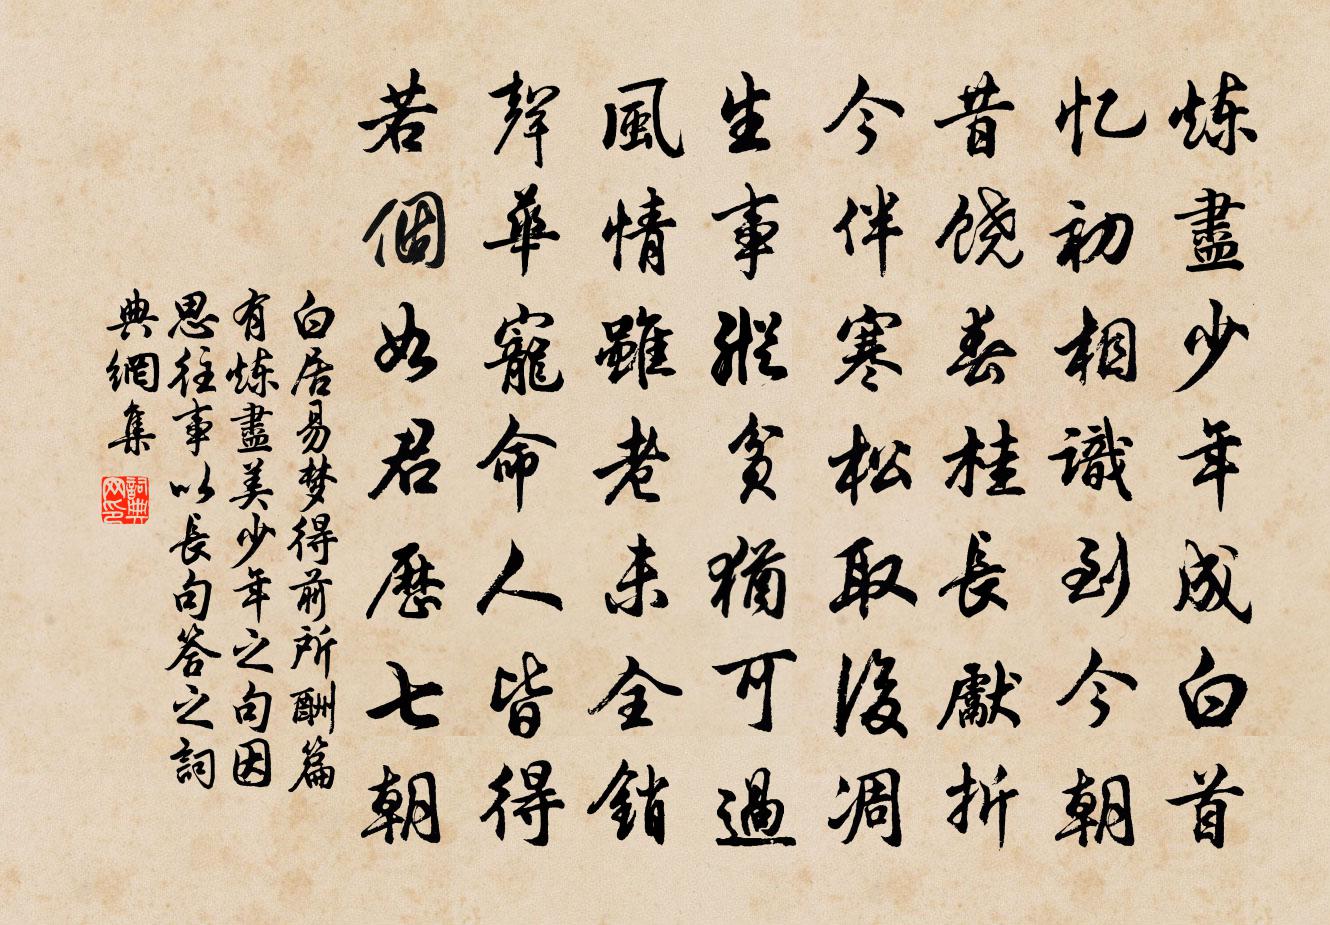 炼盡少年成白首
忆初相識到今朝
昔饶春桂長獻折
今伴寒松取後凋
生事縱貧猶可過
風情雖老未全銷
聲華寵命人皆得
若個如君歷七朝
白居易梦得前所酬篇
有炼盡美少年之句因
思往事以長句答之詞
典網集
詞典网印